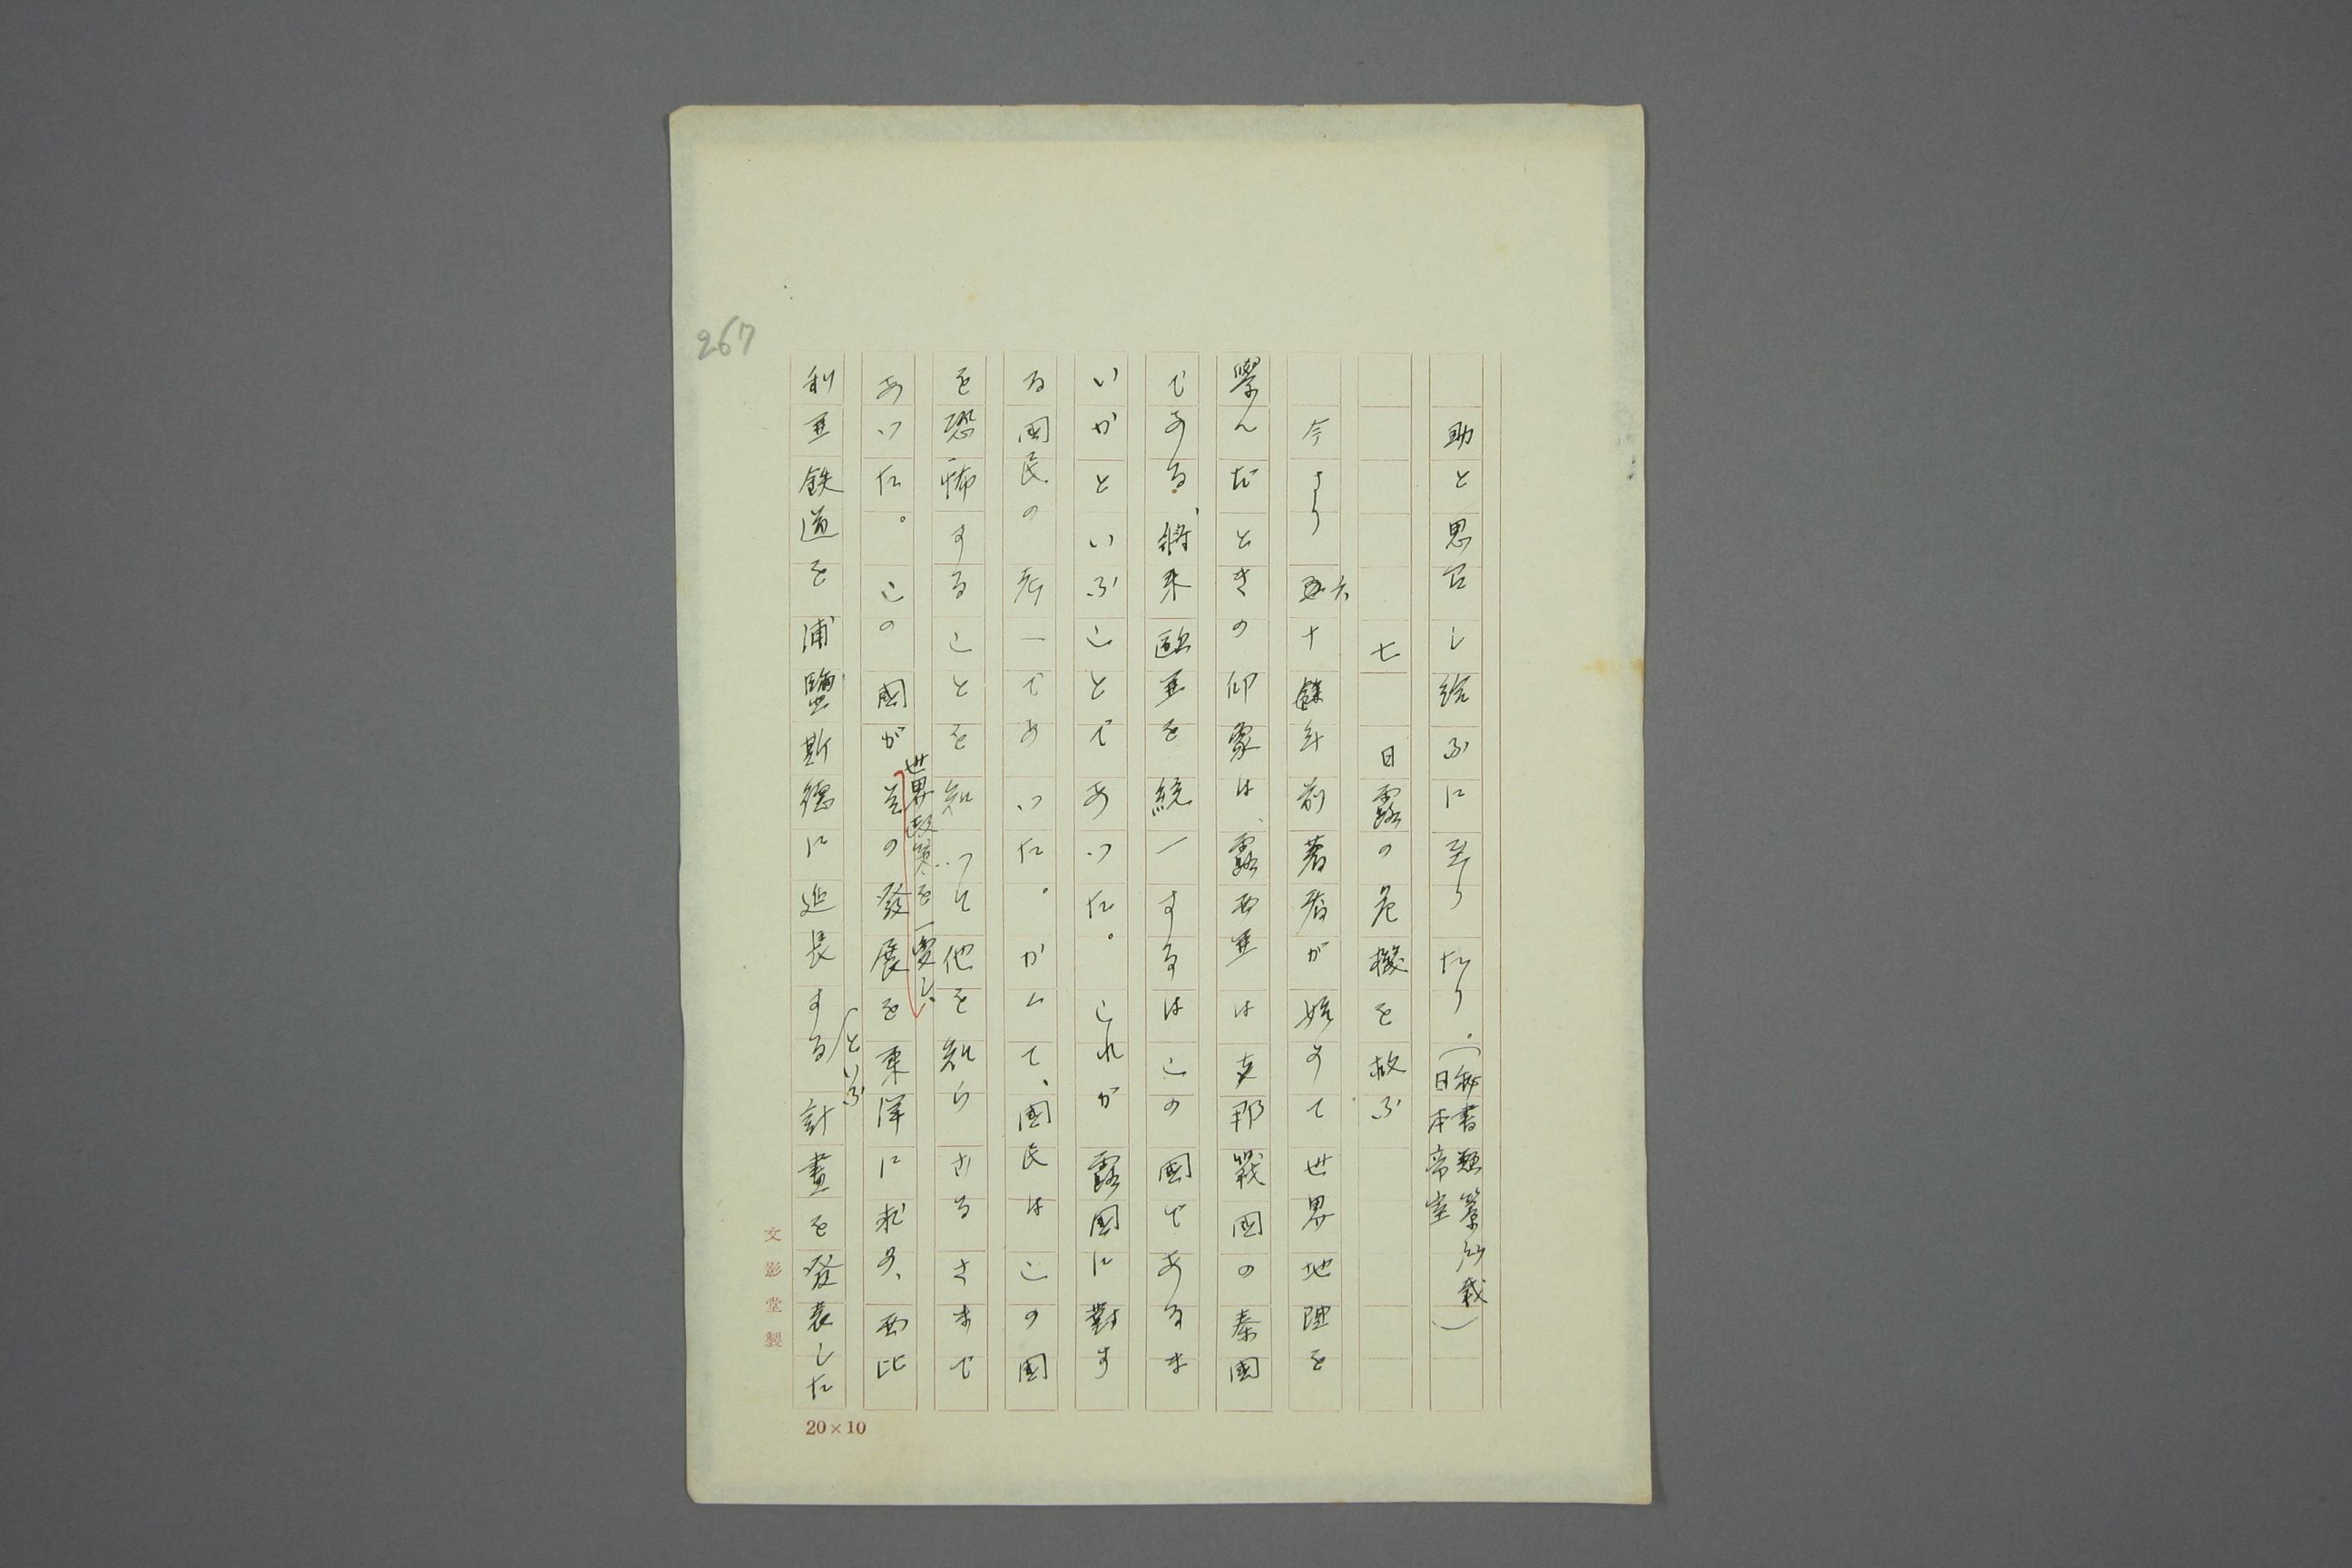 助と思召し給ふに至りたり。(秘書類纂所載 日本帝室)
七 日露の危機を救ふ
今より六十餘年前著者が始めて世界地理を
學んだときの印象は、露西亜は支那戰國の秦國
である、將來歐亜を統一するはこの國であるま
いかといふことであつた。これが露國に對す
る國民の考へであつた。かくて、國民はこの國
を恐怖することを知つて他を知らざるさまで
あつた。この國が世界政策を一變し、
其の發展を東洋に求め、西比
利亜鉄道を浦鹽斯德に延長するといふ計畫を發表した
267
文影堂製
20×10